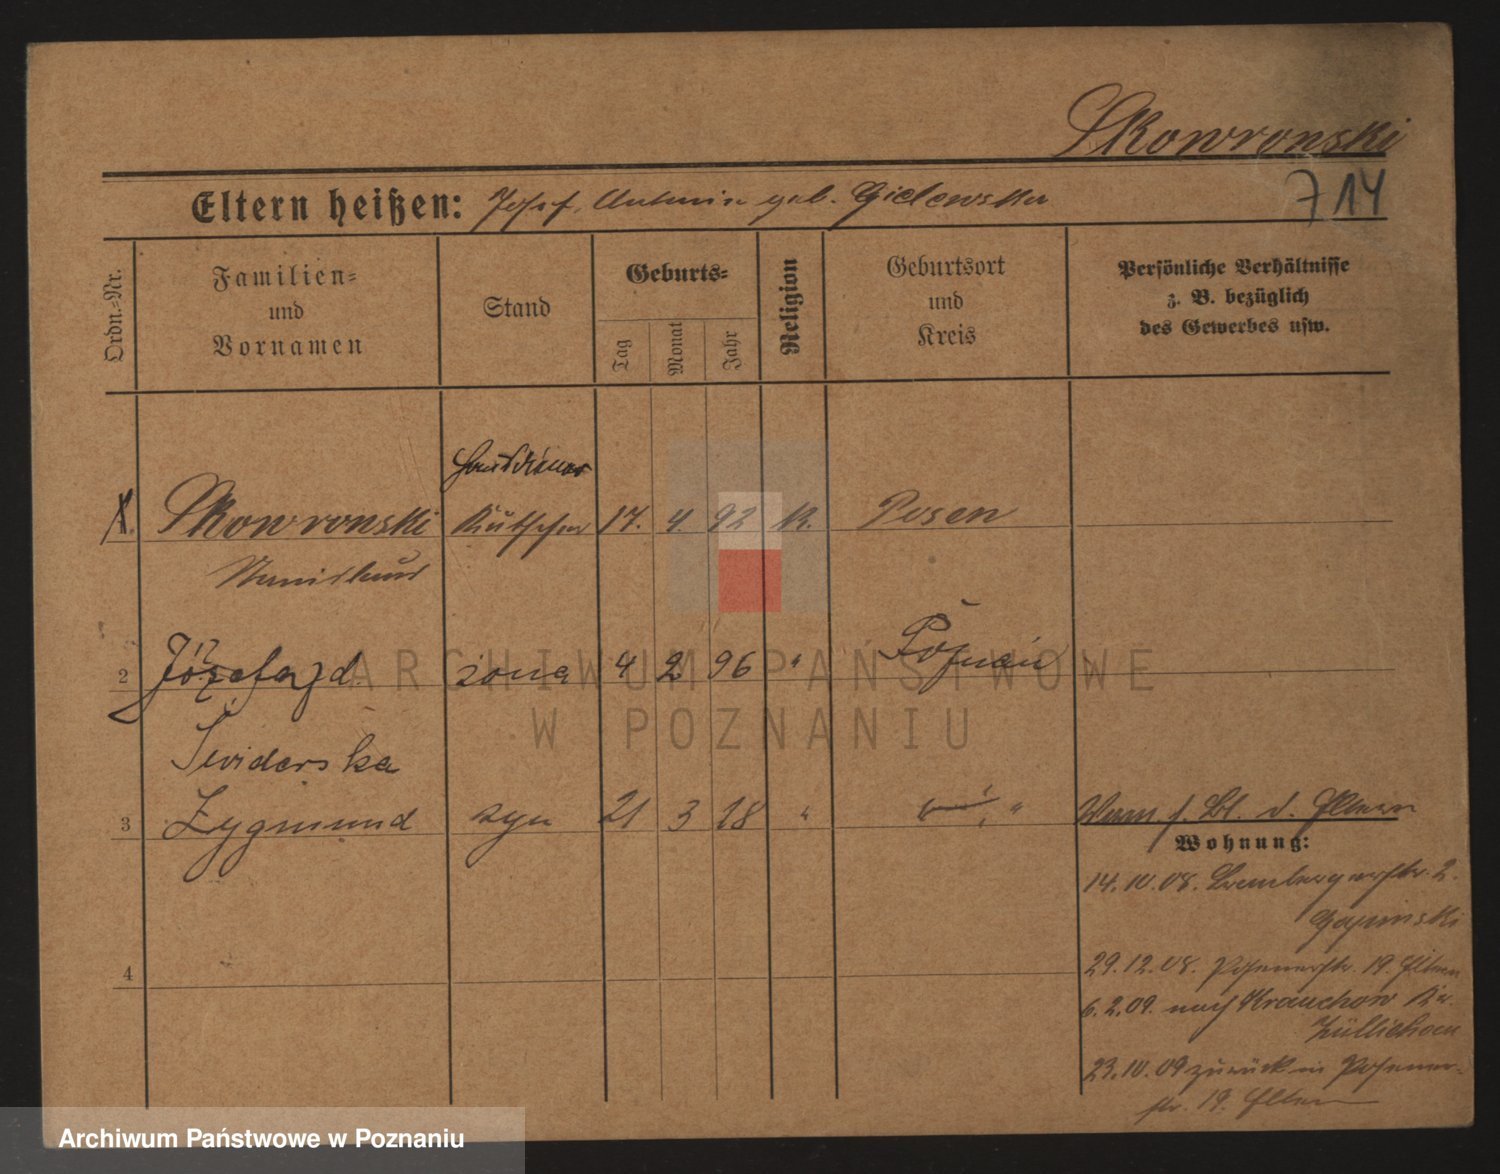 Skowronski
Eltern heißen: Josef, Antonie geb. Gielewska
714
Ordn.-Nr.
Familien-
und
Vornamen
Stand
Geburts-
Tag
Monat
Jahr
Religion
Geburtsort
und
Kreis
Persönliche Verhältnisse
z. B. bezüglich
des Gewerbes usw.
Hausdiener
1. Skowronski Kutscher 17. 4. 92 K. Posen
Stanislaus
2 Józefa zd. żona 4 2 96 " Poznań
Świderska
3 Zygmund syn 21 3 18 " "
f. Bl. d. Eltern
Wohnung:
14.10.08. Brombergerstr. 2.
29.12.08. Posenerstr. 19. Eltern
6.2.09. nach Krauchow Kr.
Züllichau
23.10.09 zurück in Posener-
str. 19. Eltern
4
ARCHIWUM PAŃSTWOWE
W POZNANIU
Archiwum Państwowe w Poznaniu